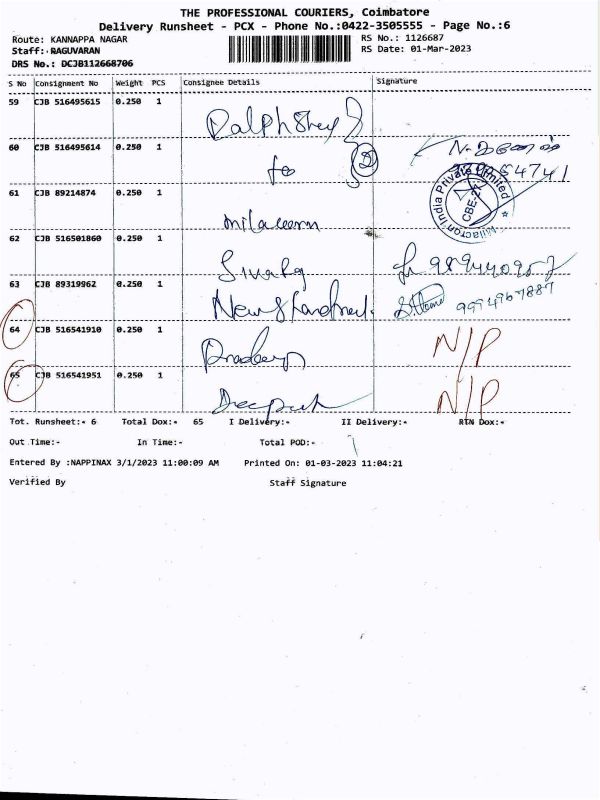 THE PROFESSIONAL COURIERS, Coimbatore
Delivery Runsheet - PCX - Phone No.:0422-3505555 - Page No.:6
Route: KANNAPPA NAGAR RS No.: 1126687
Staff:-RAGUVARAN RS Date: 01-Mar-2023
DRS No.: DCJB112668706
S No Consignment No Weight PCS Consignee Details Signature
59 CJB 516495615 0.250 1
60 CJB 516495614 0.250 1
61 CJB 89214874 0.250 1
milacorn
Milacron India Private Limited
CBE-27
62 CJB 516501860 0.250 1
9894440957
63 CJB 89319962 0.250 1
9994967887
64 CJB 516541910 0.250 1
Pradeep N/P
65 CJB 516541951 0.250 1
Deepak N/P
Tot. Runsheet:- 6 Total Dox:- 65 I Delivery:- II Delivery:- RTN Dox:-
Out Time:- In Time:- Total POD:-
Entered By :NAPPINAX 3/1/2023 11:00:09 AM Printed On: 01-03-2023 11:04:21
Verified By Staff Signature